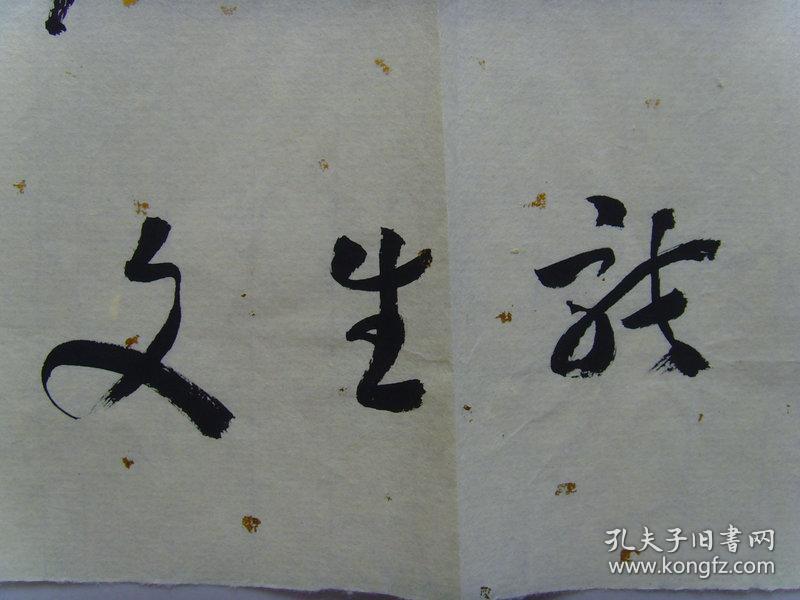 生
文
孔夫子旧書网
www.kongfz.com